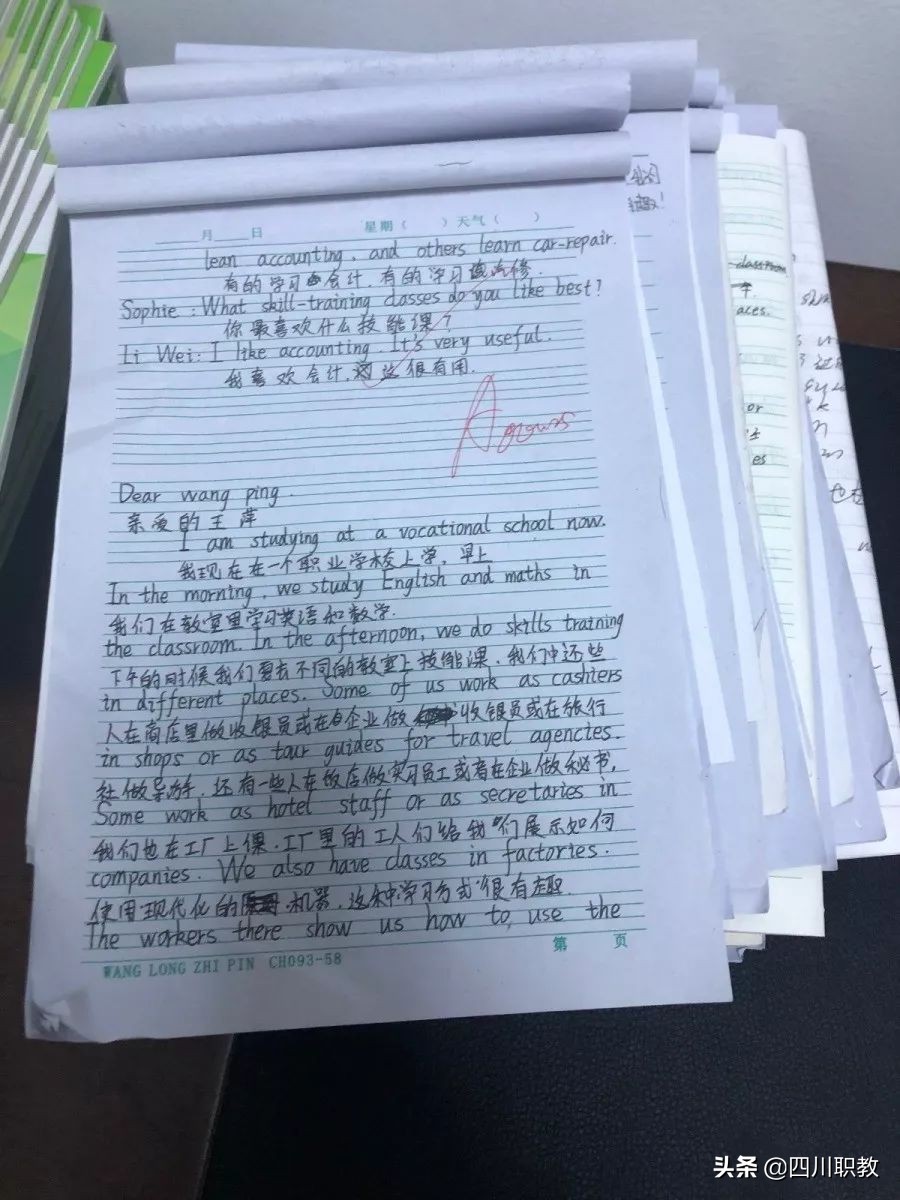 月 日 星期（ ）天气（ ）
lean accounting, and others learn car-repair.
有的学习会计，有的学习汽修.
Sophie : What skill-training classes do you like best?
你最喜欢什么技能课？
Li Wei: I like accounting. It's very useful.
我喜欢会计，这很有用.
A
Dear wang ping.
亲爱的王萍
I am studying at a vocational school now.
我现在在一个职业学校上学，早上
In the morning, we study English and maths in
我们在教室里学习英语和数学.
the classroom. In the afternoon, we do skills training
下午的时候我们要去不同的教室上技能课，我们中还些
in different places. Some of us work as cashiers
人在商店里做收银员或在企业做收银员或在旅行
in shops or as tour guides for travel agencies.
社做导游，还有一些人在饭店做实习员工或者在企业做秘书，
Some work as hotel staff or as secretaries in
我们也在工厂上课，工厂里的工人们给我们展示如何
companies. We also have classes in factories.
使用现代化的机器，这种学习方式很有趣
The workers there show us how to, use the
WANG LONG ZHI PIN CH093-58
第 页
classroom
aces.
or
es
头条 @四川职教